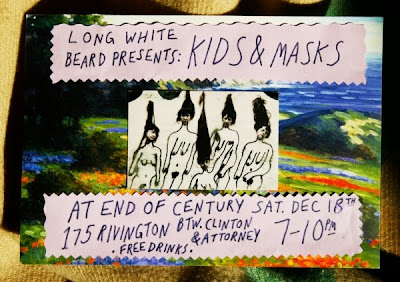 LONG WHITE
BEARD PRESENTS: KIDS & MASKS
AT END OF CENTURY SAT. DEC 18TH
175 RIVINGTON BTW. CLINTON & ATTORNEY 7-10PM
· FREE DRINKS ·